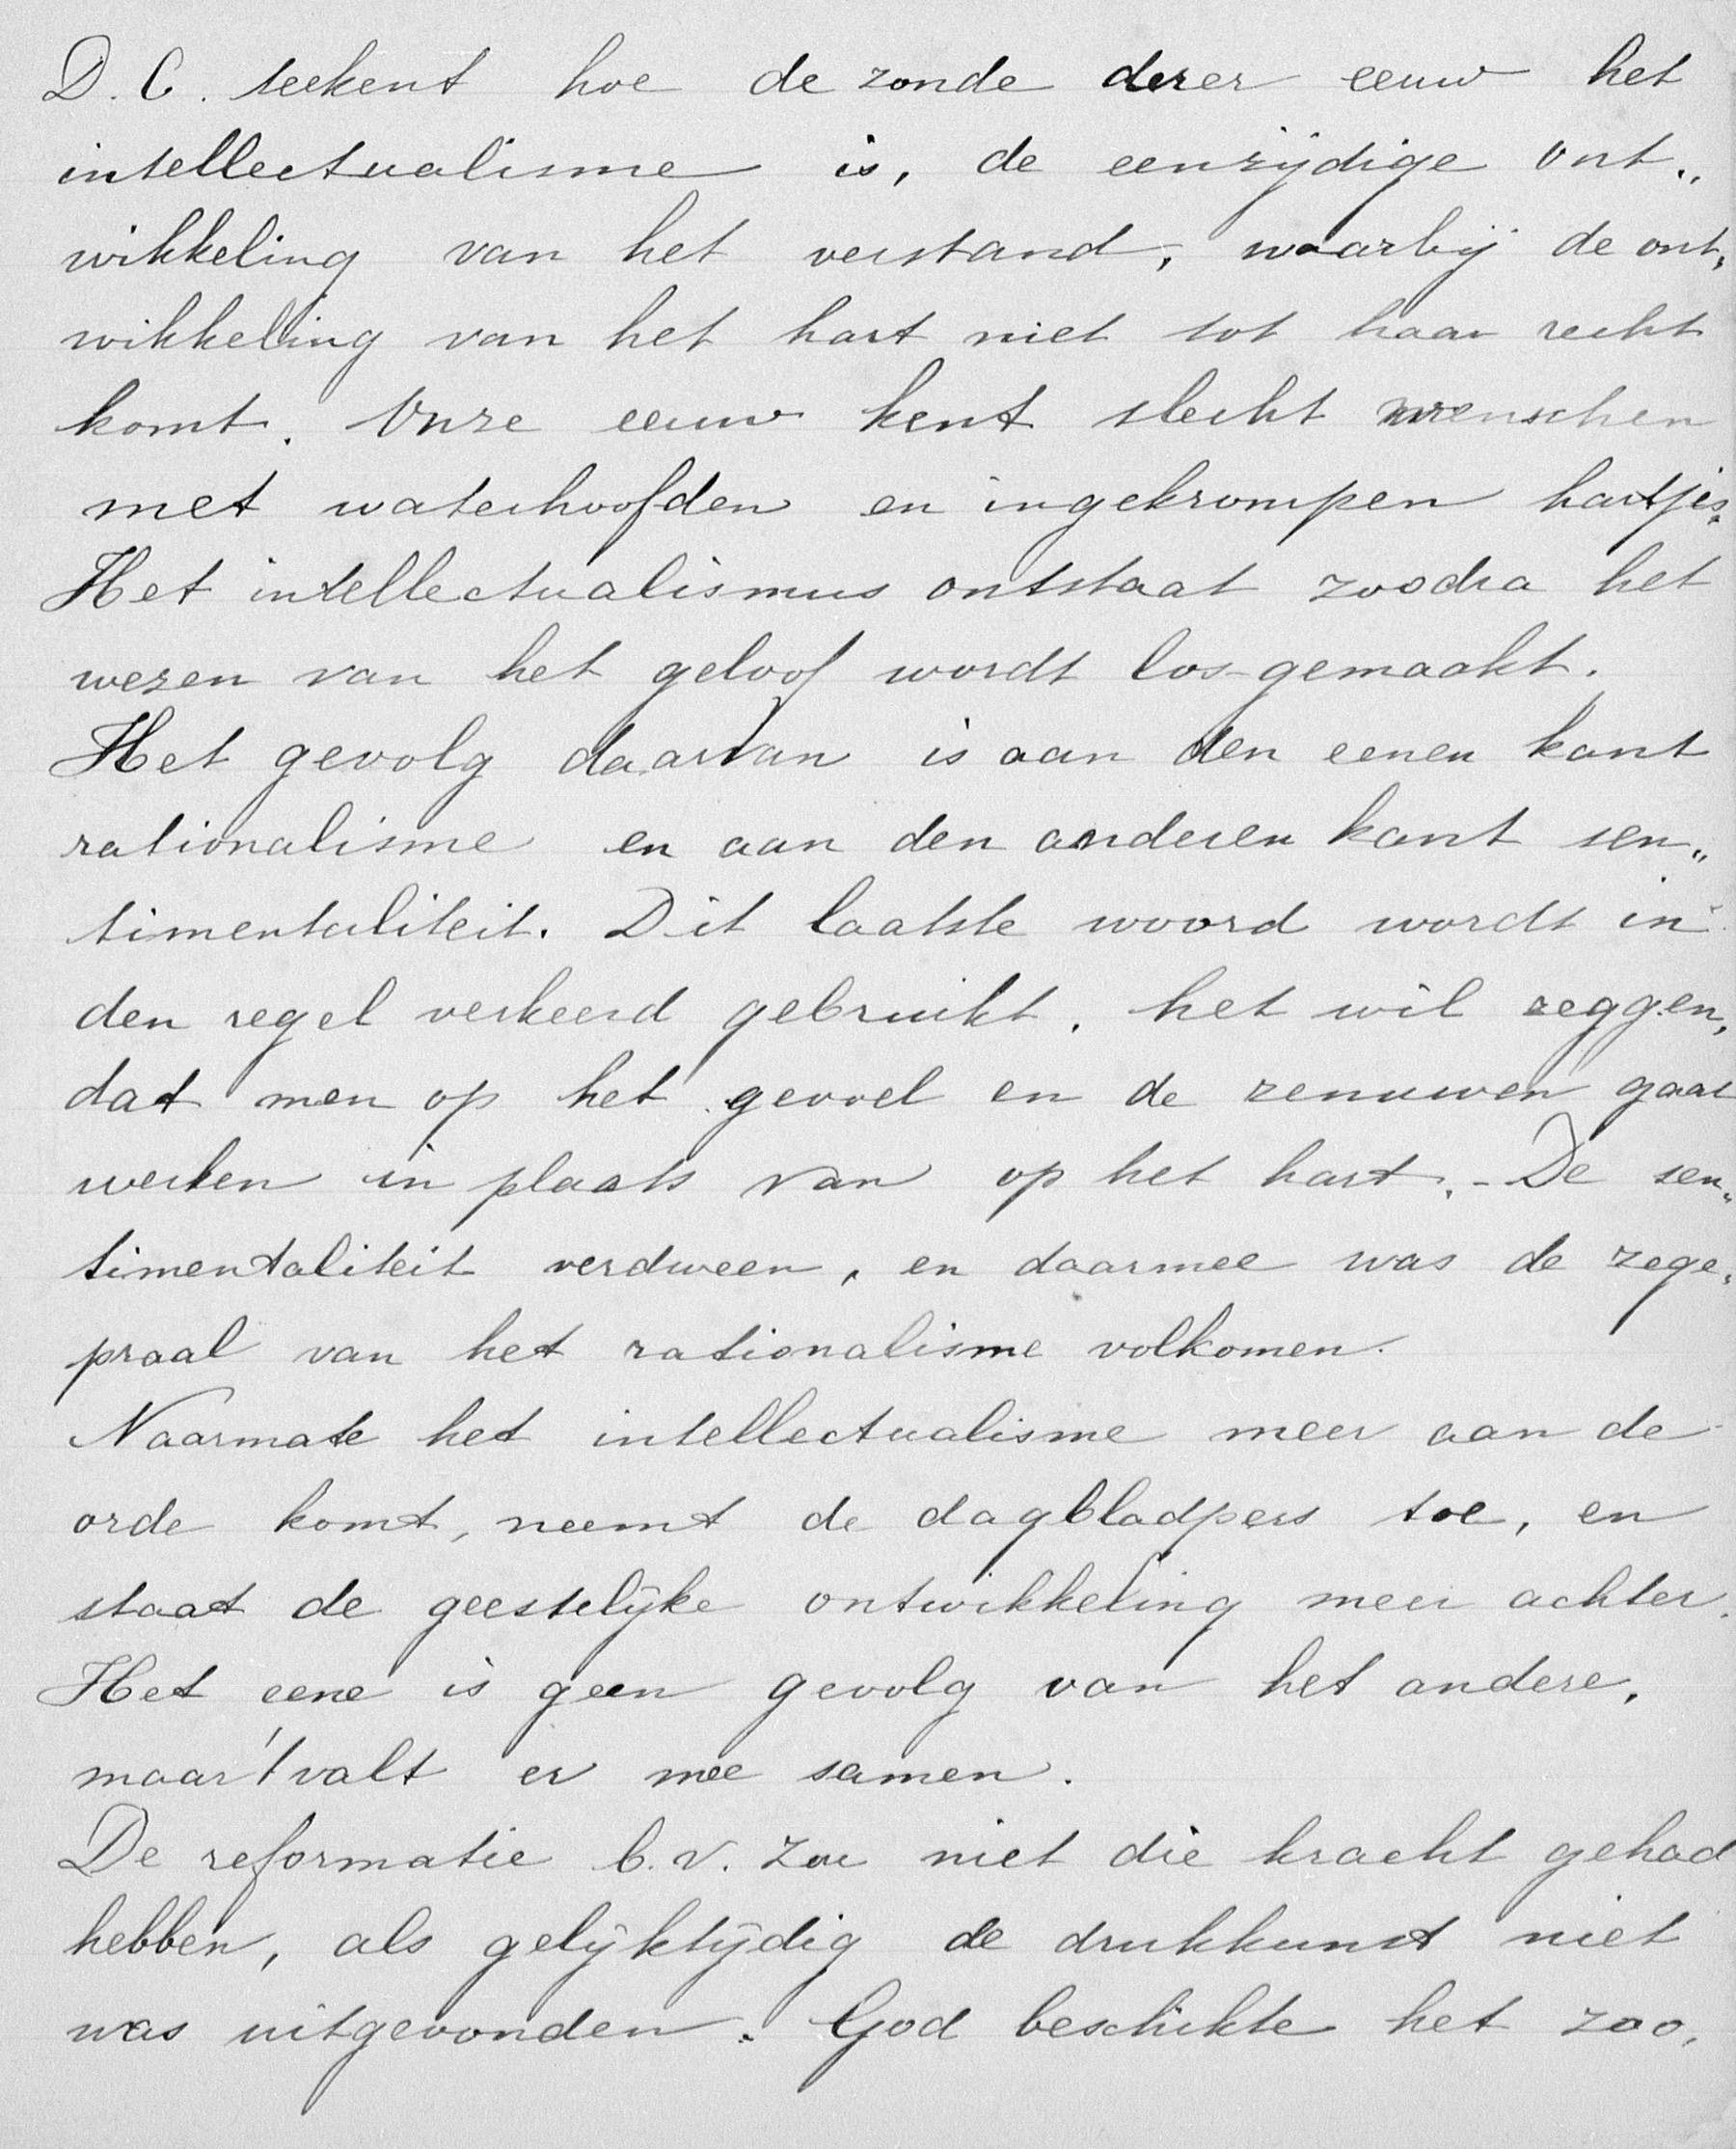 D. C. teekent hoe de zonde dezer eeuw het
intellectualisme is, de eenzijdige ont„
wikkeling van het verstand, waarbij de ont„
wikkeling van het hart niet tot haar recht
komt. Onze eeuw kent slecht menschen
met waterhoofden en ingekrompen hartjes.
Het intellectualismus ontstaat zoodra het
wezen van het geloof wordt los-gemaakt.
Het gevolg daarvan is aan den eenen kant
rationalisme en aan den anderen kant sen„
timentaliteit. Dit laatste woord wordt in
den regel verkeerd gebruikt, het wil zeggen,
dat men op het gevoel en de zenuwen gaat
werken in plaats van op het hart. - De sen„
timentaliteit verdween, en daarmee was de zege„
praal van het rationalisme volkomen.
Naarmate het intellectualisme meer aan de
orde komt, neemt de dagbladpers toe, en
staat de geestelijke ontwikkeling meer achter.
Het eene is geen gevolg van het andere,
maar 't valt er mee samen.
De reformatie b.v. zou niet die kracht gehad
hebben, als gelijktijdig de drukkunst niet
was uitgevonden. God beschikte het zoo,